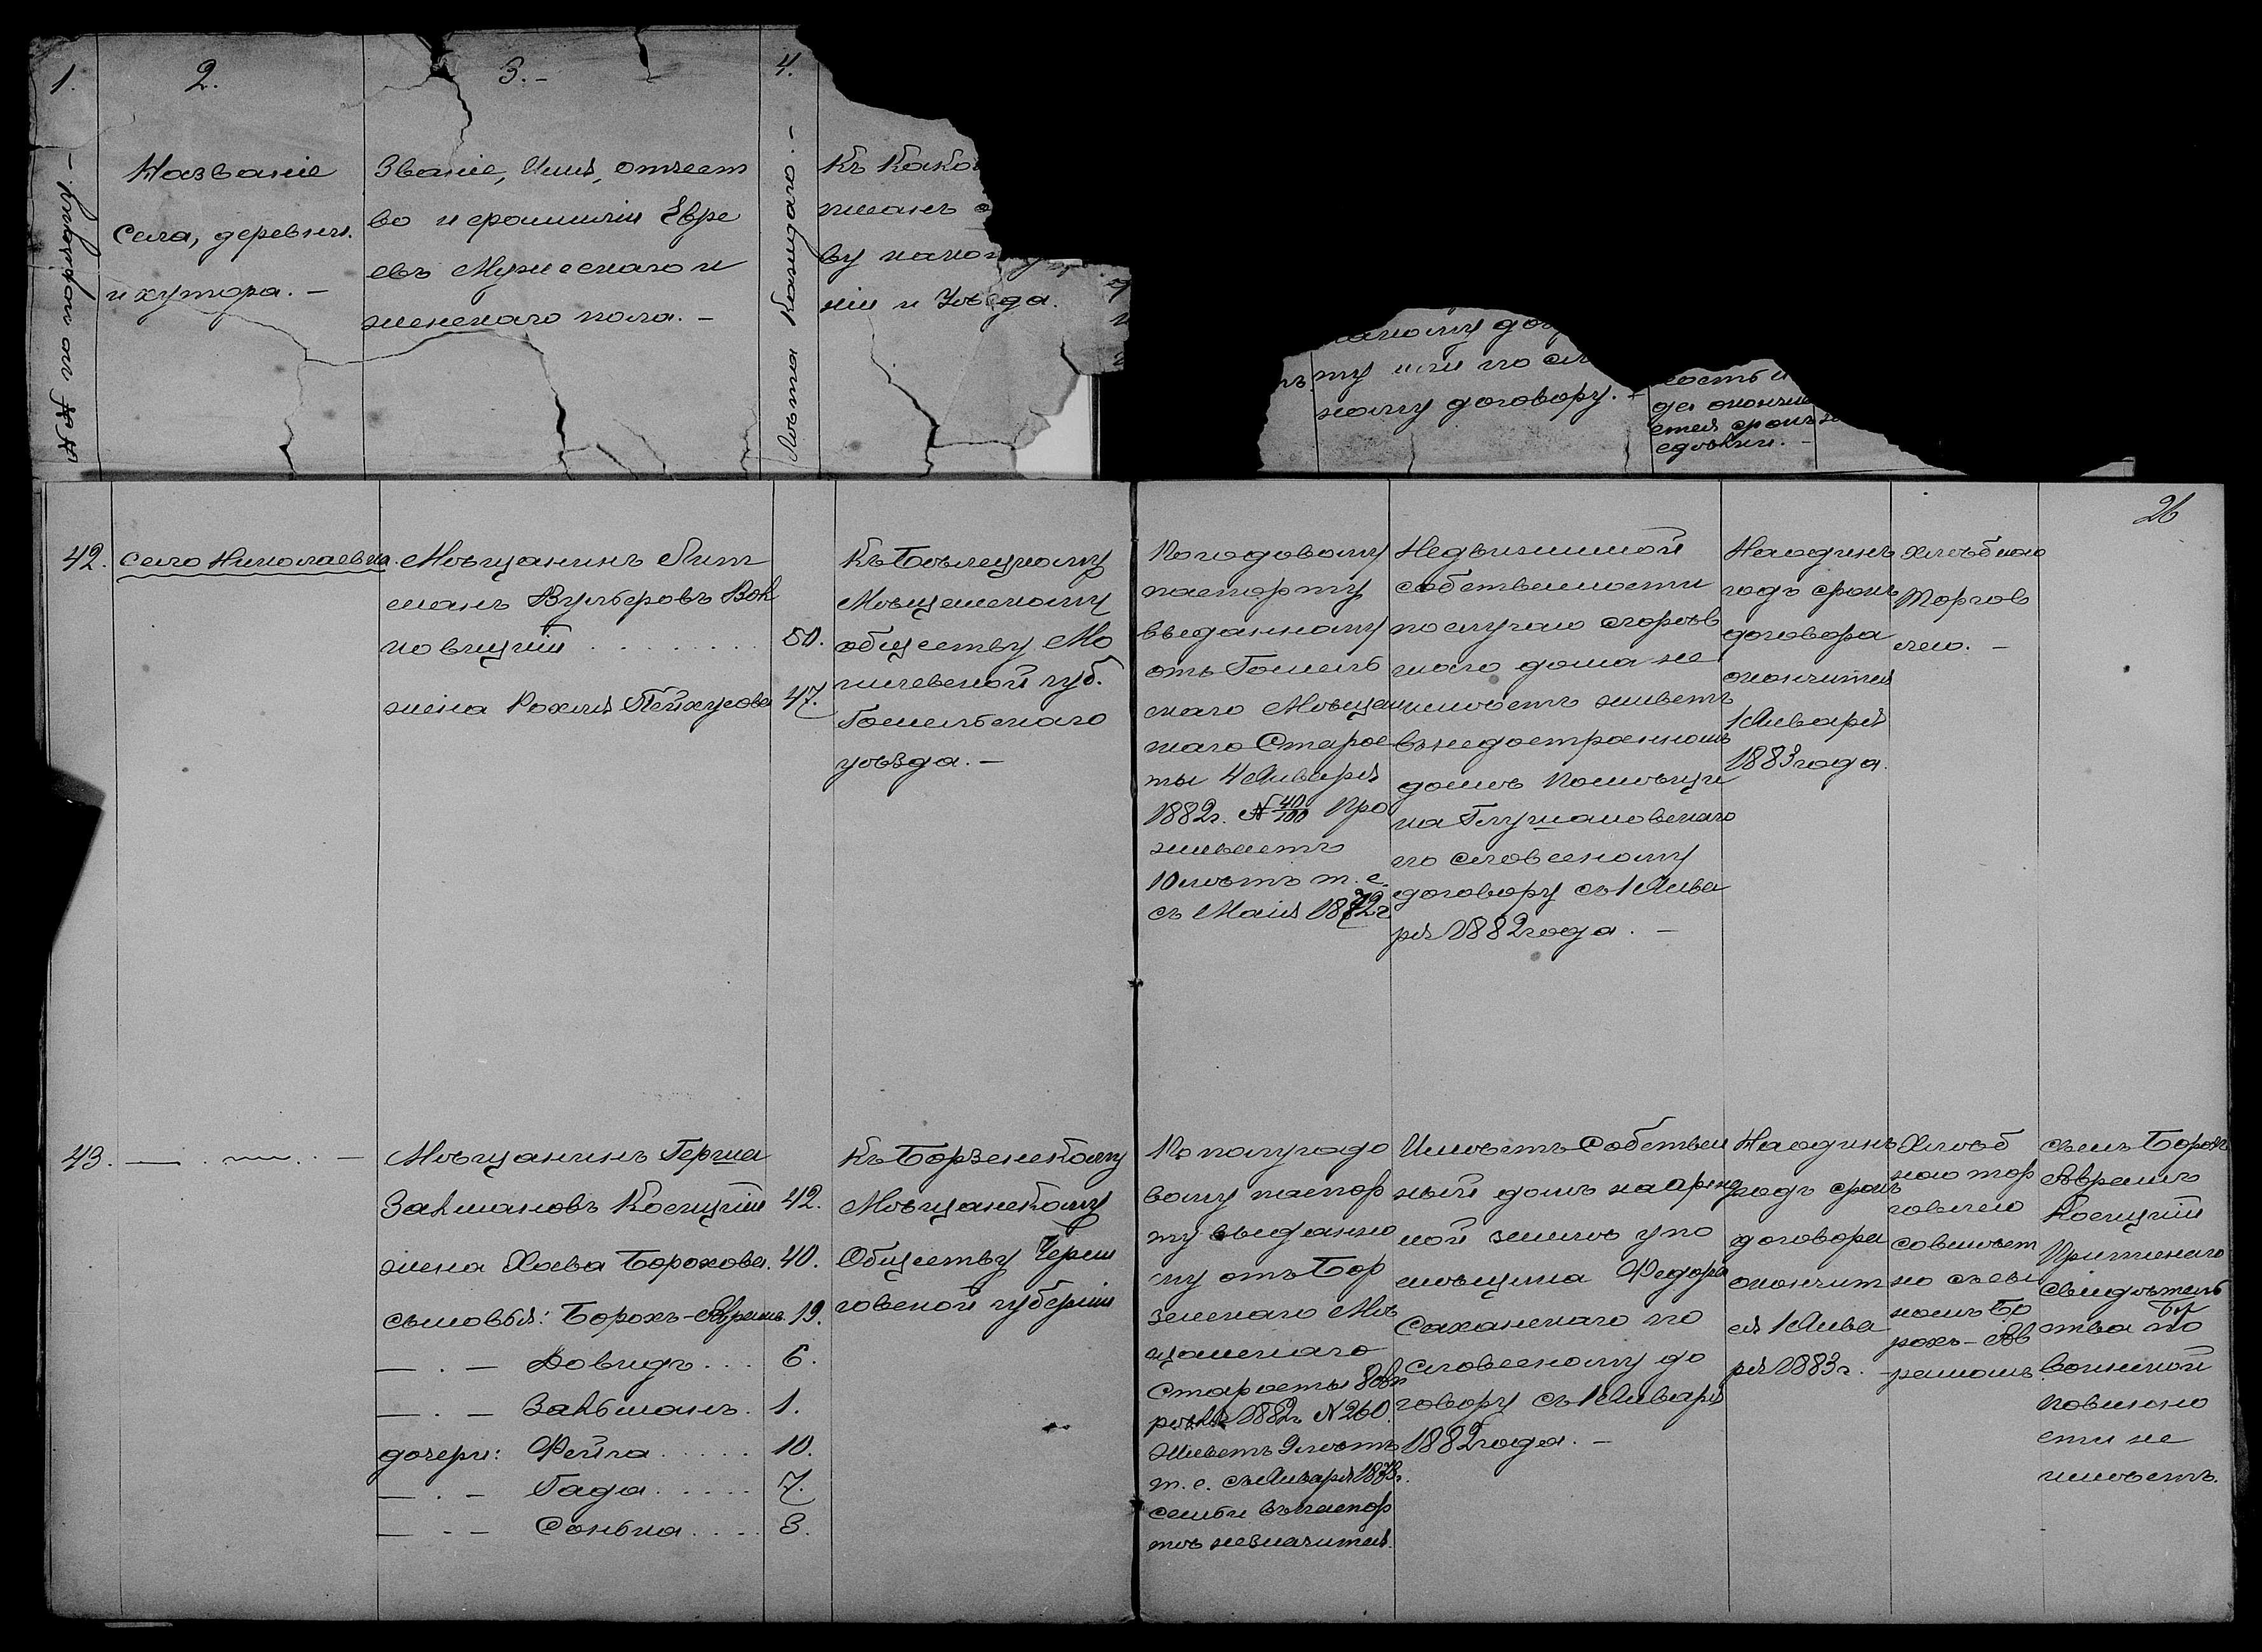 1.
2.
3.-
4.
№№ по порядку.-
Названіе
села, деревни
и хутора.-
Званіе, Имя, отчест
во и фамилія Евре
евъ Мужескаго и
женскаго пола.-
Лѣта каждаго.-
Къ како
писанъ
ву како
ніи и Уѣзда.
му до
ту или по сл
ному договору.-
ность и
да оконча
ется срокъ
сдѣлки.-
26
42.
село Николаевка.
Мѣщанинъ Лит
манъ Вульфовъ
50.
жена Рохля Пейхусова
47.
Къ Бѣлецкому
Мѣщанскому
обществу Мо
гилевской губ.
Гомельскаго
уѣзда.-
По годовому
паспорту
выданному
отъ Гомель
скаго Мѣщан
скаго Старос
ты 4 Января
1882г. № 40/100 Про
живаетъ
10 лѣтъ т. е.
съ Маія 1872г.
Недвижимой
собственности
по случаю сгорѣв
шаго дома не
имѣетъ живетъ
въ недостроенномъ
домѣ Помѣщи
ка Глушановскаго
по словесному
договору съ 1 Янва
ря 1882 года.-
На одинъ
годъ срокъ
договора
окончится
1 Января
1883 года.
Хлѣбною
Торгов
лею.-
43.
Мѣщанинъ Герша
Залмановъ Косицкій
42.
жена Хава Борохова.
40.
сыновья: Борохъ-Аврамъ
19.
— . — Довидъ...
6.
— . — Зальманъ.
1.
дочери: Фейга.....
10.
— . — Гада.....
7.
— . — Сонька....
3.
Къ Борзенскому
Мѣщанскому
Обществу Черни
говской губерніи
По полугодо
вому паспор
ту выданно
му отъ Бор
зенскаго Мѣ
щанскаго
Старосты
1882г. № 260.
Живетъ 9 лѣтъ
т. е. съ Января 1873г.
семьи въ паспор
тѣ незначится.
Имѣетъ Собствен
ный домъ на аренд
ной землѣ у по
мѣщика Федора
Саханскаго по
словесному до
говору съ 1 Января
1882 года.-
На одинъ
годъ срокъ
договора
окончит
ся 1 Янва
ря 1883г.-
Хлѣб
ною тор
говлею
совмѣст
но съ сы
номъ Бо
рохъ-Ав
рамомъ.
сынъ Борохъ
Аврамъ
Косицкій
Приписнаго
свидѣтель
тва по
воинской
повинно
сти не
имѣетъ.